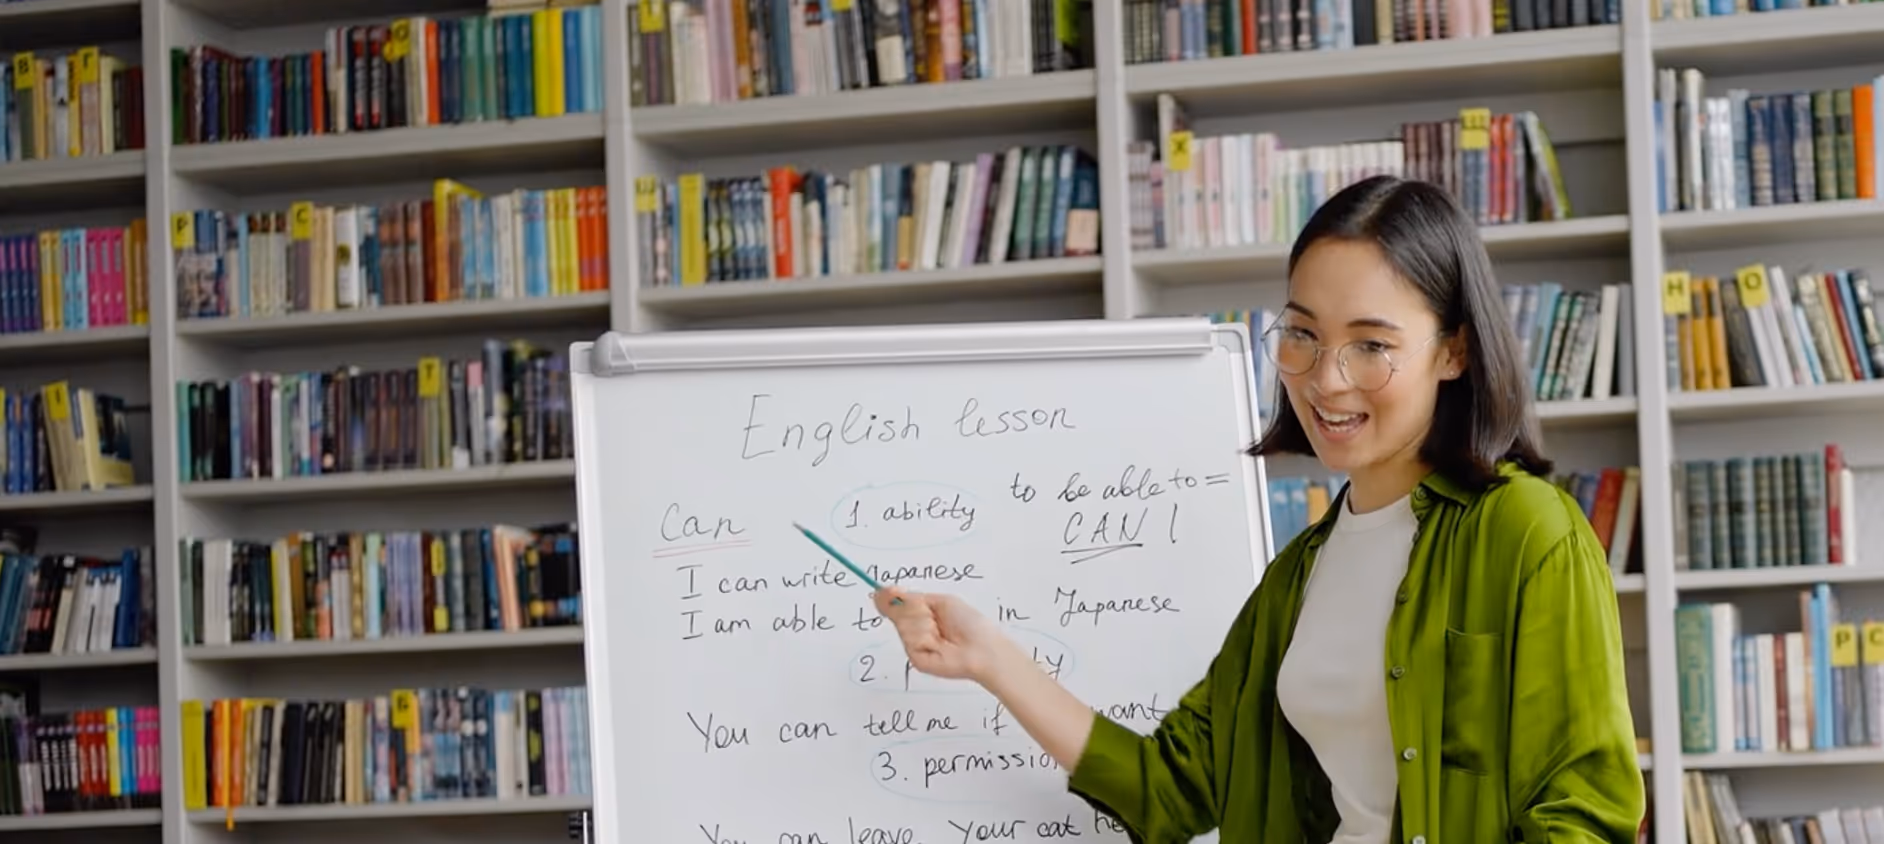 English lesson
Can
1. ability
to be able to =
CAN !
I can write Japanese
I am able to in Japanese
2.
You can tell me if want
3. permission
You can leave. Your cat